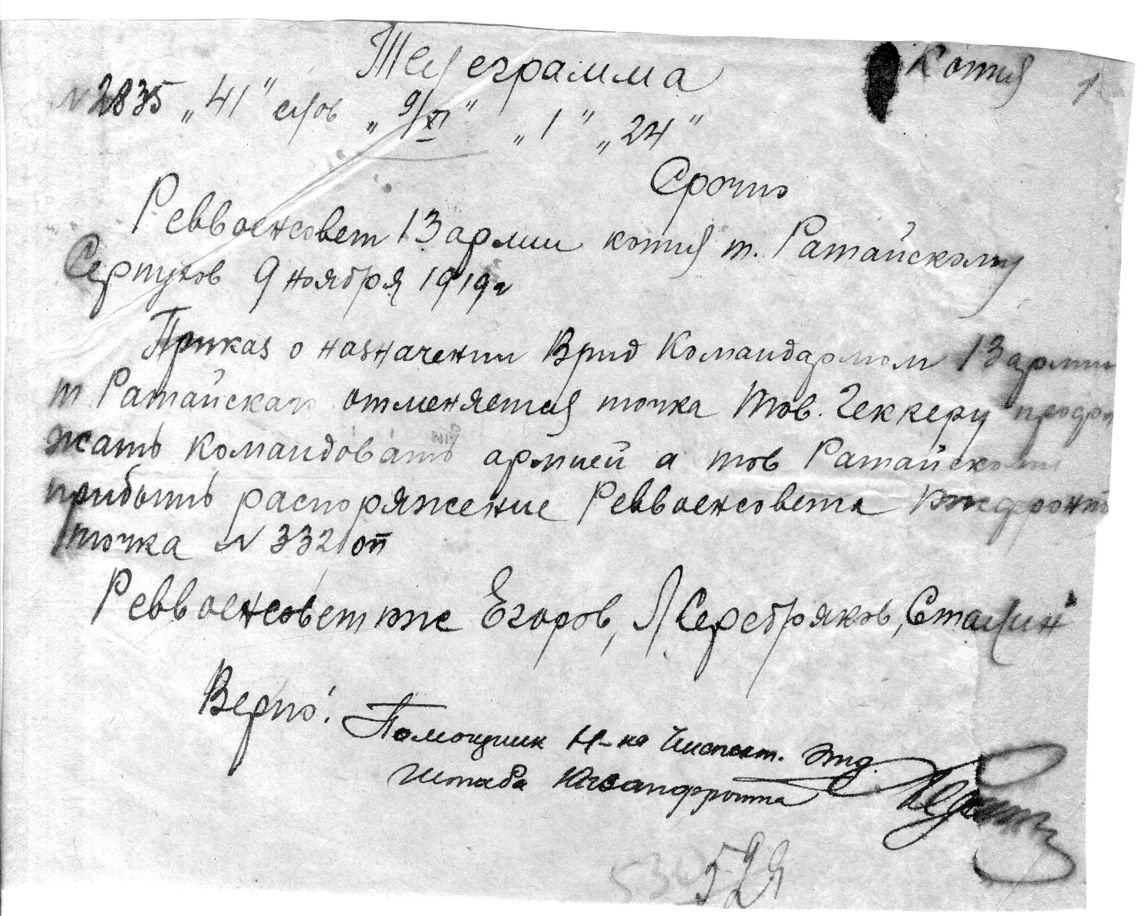 Телеграмма Копия
№ 2835 „41" слов „9/XI" „1" „24"
Срочно
Реввоенсовет 13 армии копия т. Ратайскому
Серпухов 9 ноября 1919 г
Приказ о назначении Врид Командармом 13 армии
т Ратайского отменяется точка Тов. Геккеру продол
жать командовать армией а тов Ратайскому
прибыть распоряжение Реввоенсовета Южфронта
точка № 3321 оп
Реввоенсовет юж Егоров, Л Серебряков, Сталин
Верно!
Помощник Н-ка Инспект. отд.
штаба Югозапфронта
529